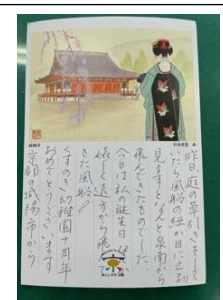 昨日、庭の草引きをして
いたら風船の紐が目に止まり
見ますと、なんと泉南から
飛んできたものでした。
今日は私の誕生日
遠方から飛
きた風船！
くすのき幼稚園十周年
おめでとうございます
京都の城陽市から